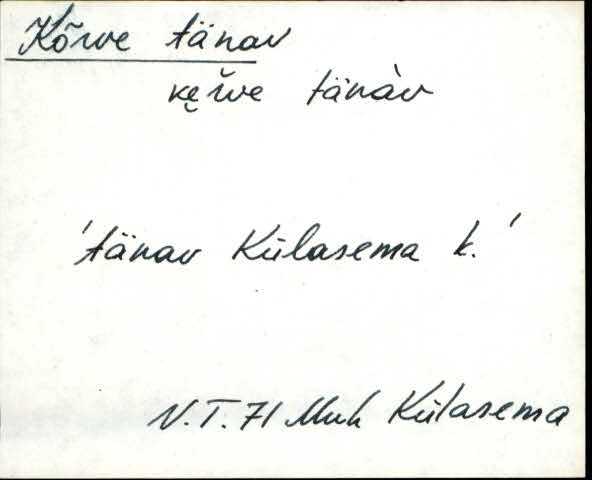 Kõrve tänav
ke̮r̆ve tänàv
'tänav Külasema k.'
V.T. 71 Muh Külasema